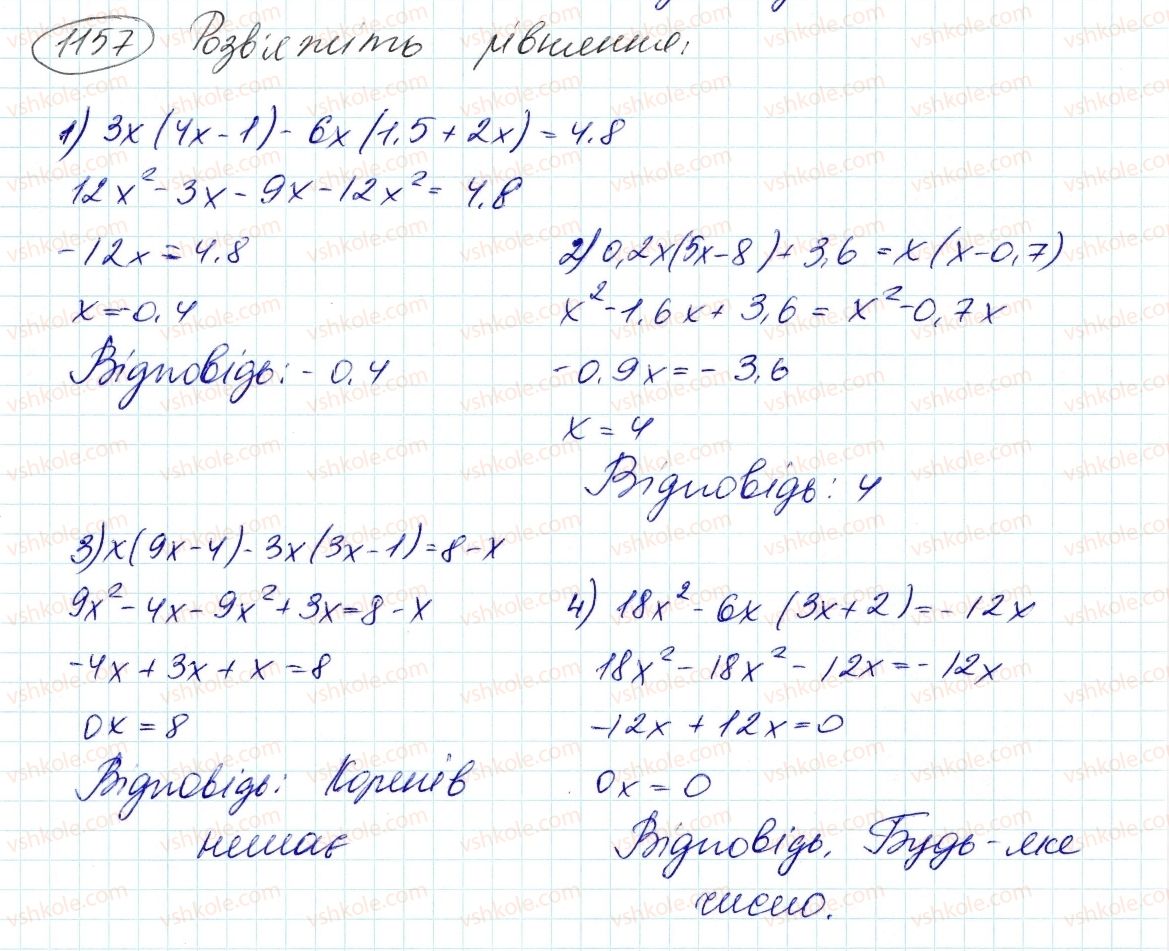 1157 Розв'яжіть рівняння:
1) 3x(4x-1)-6x(1.5+2x)=4.8
12x²-3x-9x-12x²=4.8
-12x=4.8
x=-0.4
Відповідь: -0.4
2) 0,2x(5x-8)+3,6=x(x-0,7)
x²-1.6x+3,6=x²-0,7x
-0.9x=-3,6
x=4
Відповідь: 4
3) x(9x-4)-3x(3x-1)=8-x
9x²-4x-9x²+3x=8-x
-4x+3x+x=8
0x=8
Відповідь: Коренів
немає
4) 18x²-6x(3x+2)=-12x
18x²-18x²-12x=-12x
-12x+12x=0
0x=0
Відповідь. Будь-яке
число.